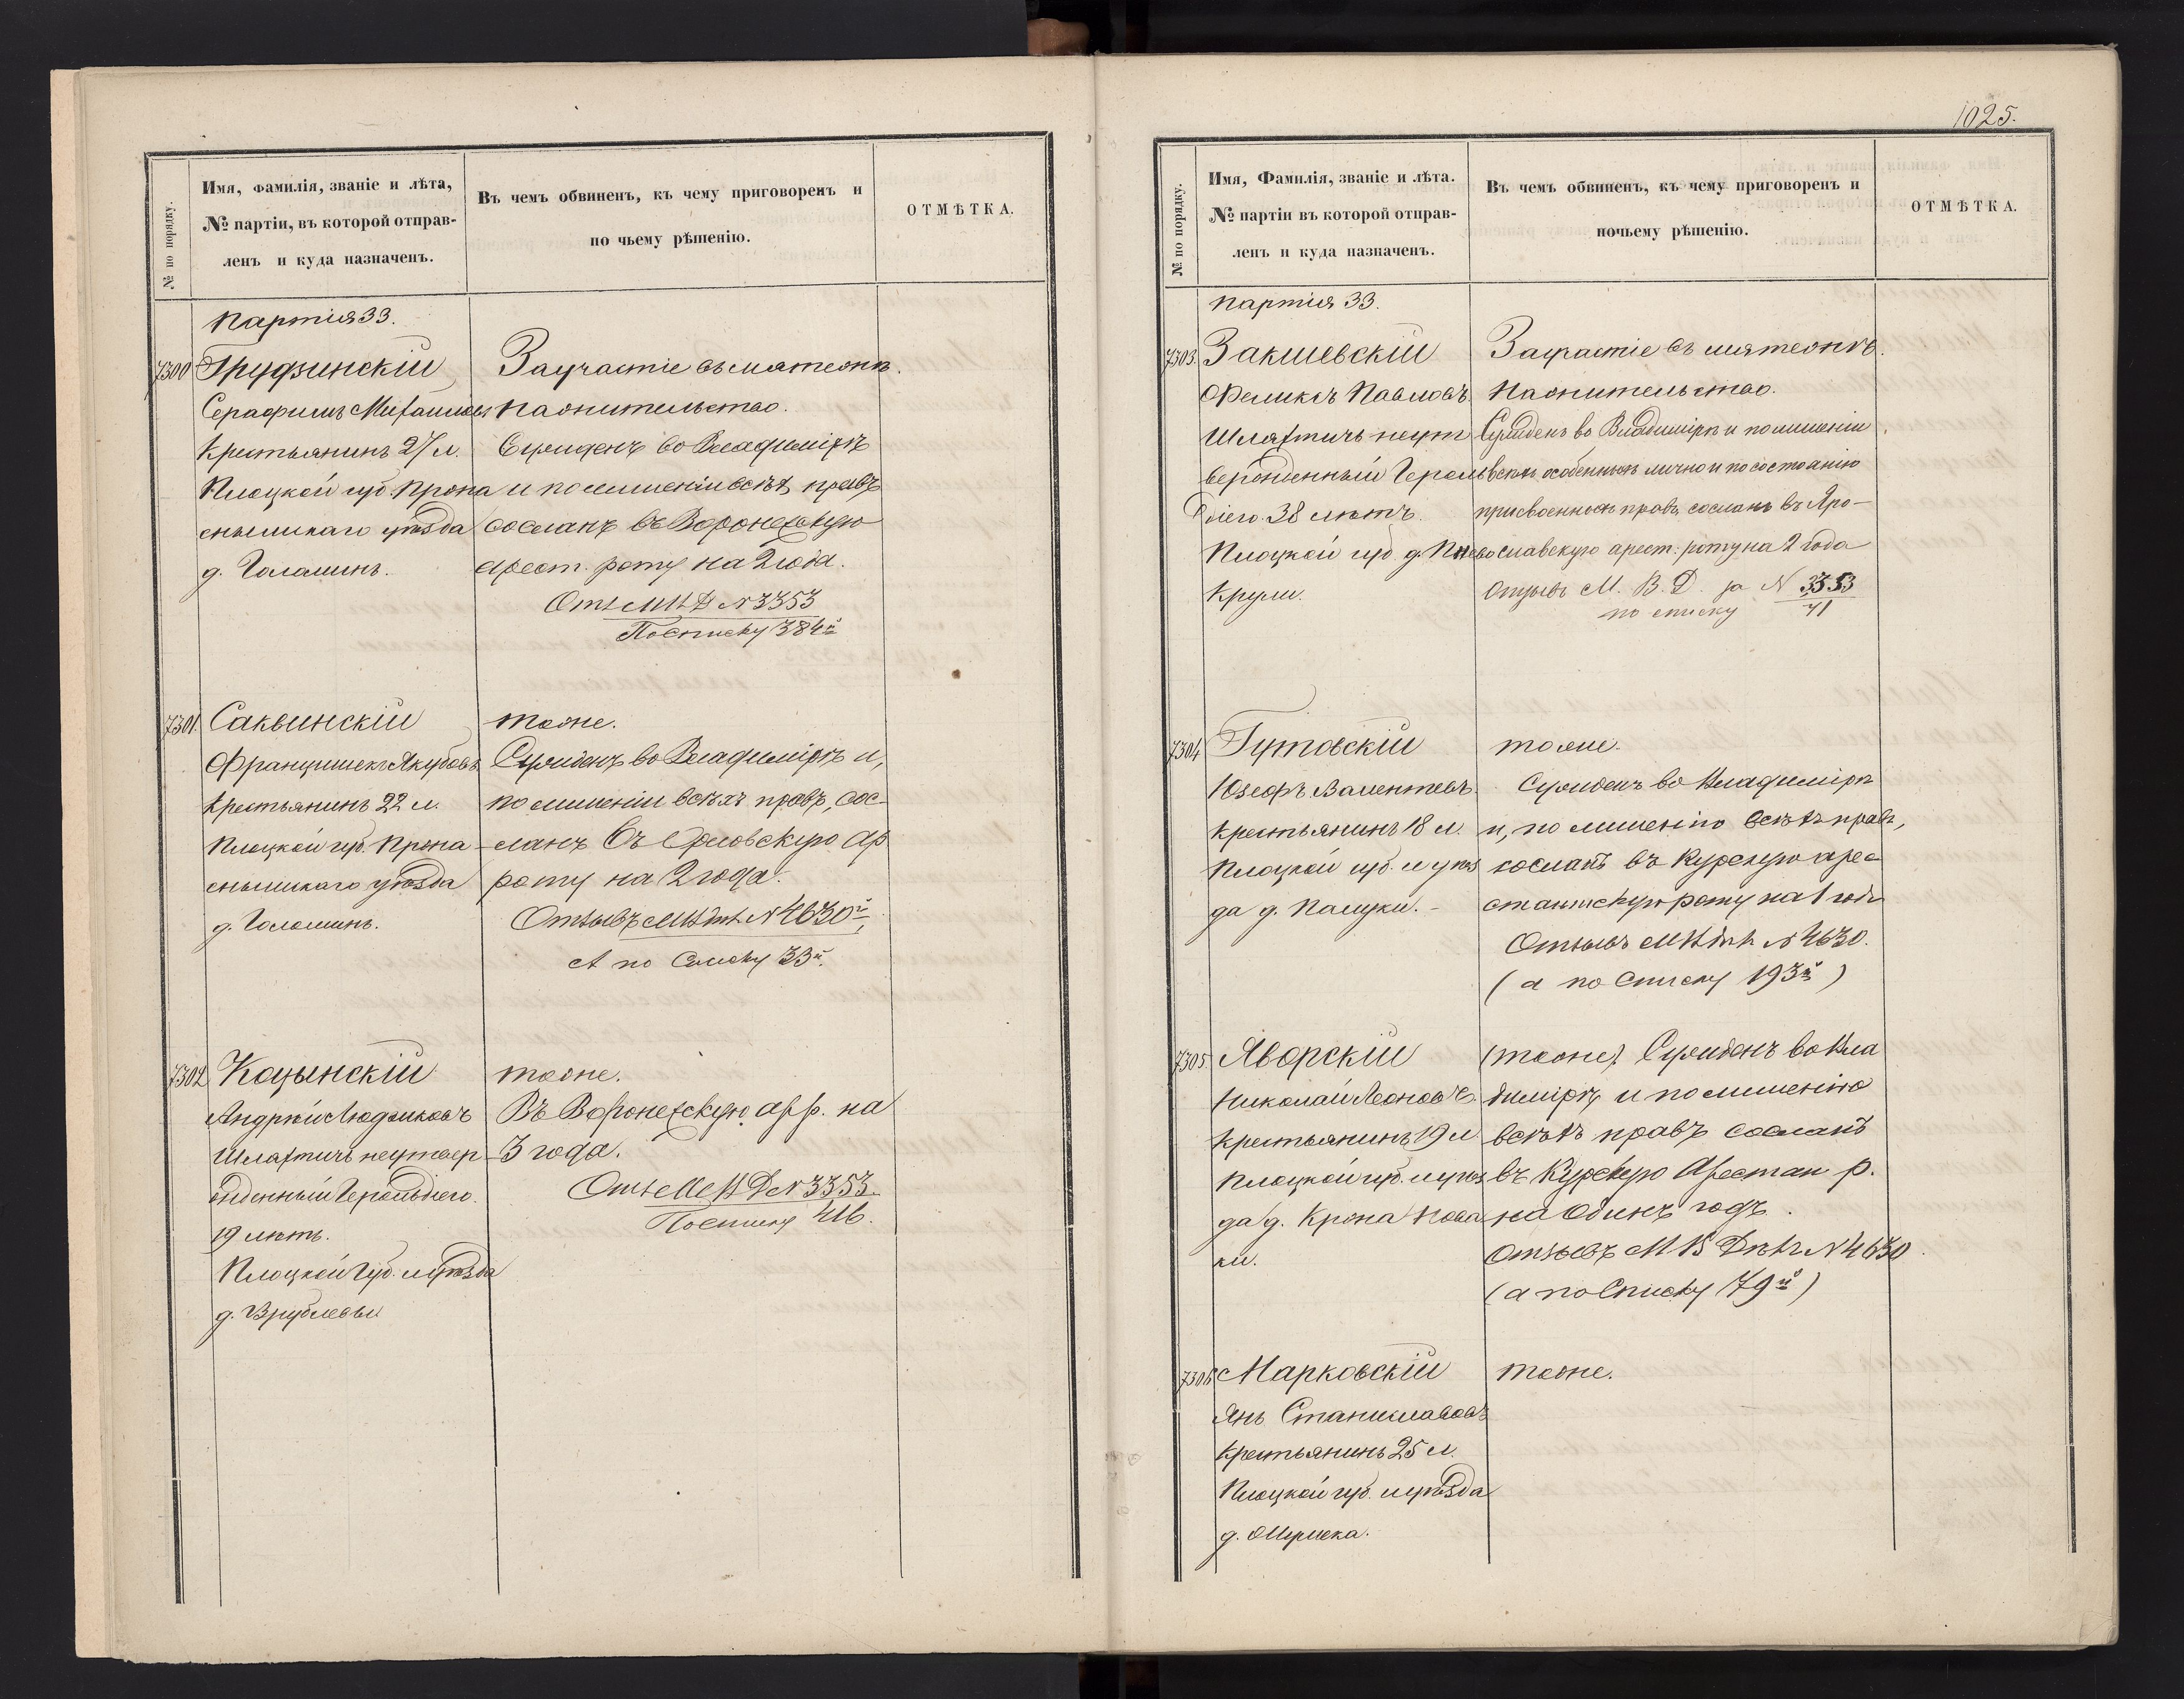 № по порядку.
Имя, Фамилія, званіе и лѣта,
№ партіи, въ которой отправ-
ленъ и куда назначенъ.
Въ чемъ обвиненъ, къ чему приговоренъ и
по чьему рѣшенію.
ОТМѢТКА.
Партія 33.
7300
Грудзинскій
Серафимъ Михаиловъ
Крестьянинъ 27 л.
Плоцкой губ. Прона
снышскаго уѣзда
д. Голаминъ.
За участіе въ мятежѣ.
На жительство.
Сужденъ во Владимірѣ
и по лишеніи всѣхъ правъ
сосланъ въ Воронежскую
арест. роту на 2 года.
Отз М В Д № 3353
По списку 384й
7301.
Саквинскій
Францишекъ Якубовъ
Крестьянинъ 22 л.
Плоцкой губ. Прона
снышскаго уѣзда
д. Голоминъ.
тоже.
Сужденъ во Владимірѣ и,
по лишеніи всѣхъ правъ, сос-
ланъ въ Орловскую ар
роту на 2 года.
Отзывъ М В Дѣлъ № 4630й,
А по Списку 33й.
7302
Коцынскій
Андрей Людвиковъ
Шляхтичъ неутвер
жденный Герольдіею.
19 лѣтъ.
Плоцкой Губ. и уѣзда
д. Врублевы
тоже.
Въ Воронежскую ар р. на
3 года.
Отз М В Д № 3353.
По списку 416.
1025.
№ по порядку.
Имя, Фамилія, званіе и лѣта.
№ партіи въ которой отправ-
ленъ и куда назначенъ.
Въ чемъ обвиненъ, къ чему приговоренъ и
почьему рѣшенію.
ОТМѢТКА.
Партія 33.
7303.
Закшевскій
Феликсъ Павловъ
Шляхтичъ неут
вержденный Героль
діего. 38 лѣтъ.
Плоцкой губ д. Пнево
Крули.
За участіе въ мятежѣ.
На жительство.
Сужденъ во Владимірѣ и по лишеніи
всѣхъ особенныхъ лично и по состоянію
присвоенныхъ правъ, сосланъ въ Яро-
славскую арест: роту на 2 года
Отзывъ М. В. Д. за № 3353
по списку 71
7304
Гутовскій
Юзефъ Валентевъ.
Крестьянинъ 18 л.
Плоцкой губ. и уѣз
да д. Палуки. -
тоже.
Сужденъ во Владимірѣ
и, по лишенію всѣхъ правъ,
сосланъ въ Курскую арес
стантскую роту на 1 годъ
Отзывъ М В Дѣлъ № 4630.
(а по Списку 193й)
7305.
Яворскій
Николай Леоновъ.
Крестьянинъ 19 л
Плоцкой губ. и уѣз
да д. Крона Нова
ки.
(тоже) Сужденъ во Вла
димірѣ, и по лишенію
всѣхъ правъ сосланъ
въ Курскую Арестан р.
на одинъ годъ.
Отзывъ М В Дѣлъ № 4630.
(а по Списку 79й)
7306
Марковскій
Янъ Станиславовъ
Крестьянинъ 25 л.
Плоцкой губ. и уѣзда
тоже.